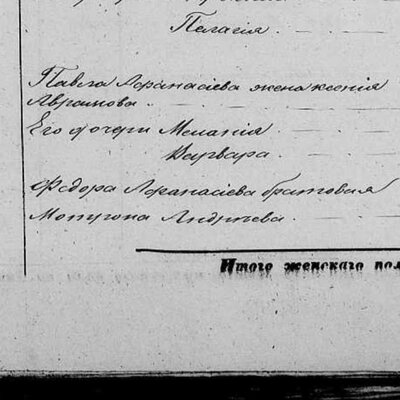 Пелагія.
Павла Афанасіева жена Ксенія
Аврамова.
Его дочери Меланія
Варвара.
Федора Афанасіева братовая
Андреева.
Итого женскаго пол